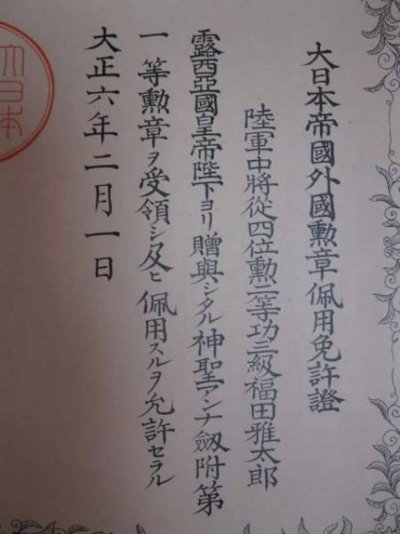 大日本帝國外國勲章佩用免許證
陸軍中將從四位勲二等功三級福田雅太郎
露西亞國皇帝陛下ヨリ贈與シタル神聖アンナ劔附第
一等勲章ヲ受領シ及ヒ佩用スルヲ允許セラル
大正六年二月一日
大日本